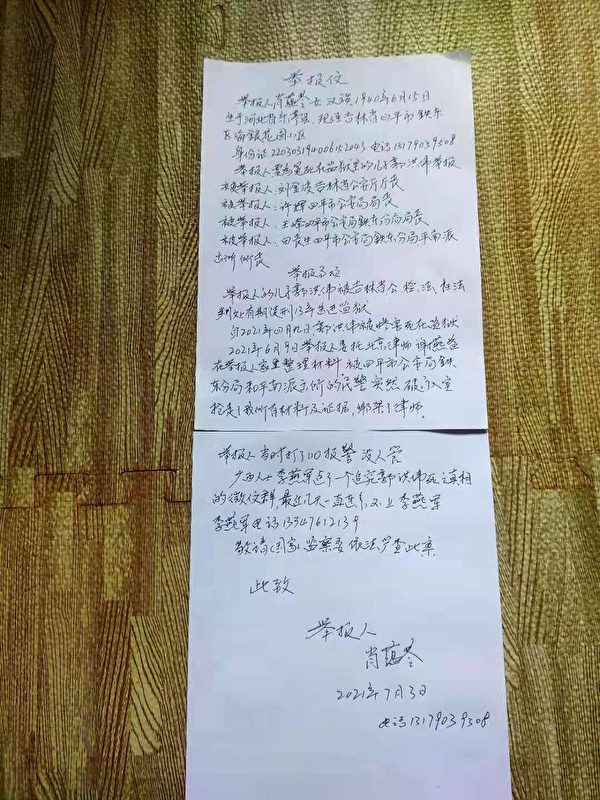 举报信
举报人肖蕴苓女汉族1940年6月15日
生于河北省乐亭县，现住吉林省四平市铁东
区海银花园11区
身份证220303194006152043电话13179039308
举报人要为冤死在监狱里的儿子郭洪伟举报
被举报人：刘金波吉林省公安厅厅长
被举报人：许辉四平市公安局局长
被举报人：王峰四平市公安局铁东分局局长
被举报人：田长生四平市公安局铁东分局平南派
出所所长
举报事项
举报人的儿子郭洪伟被吉林省公、检、法、枉法
判处有期徒刑13年送进监狱
自2021年四月九日郭洪伟被惨害死在监狱
2021年6月9日举报人委托北京律师谢燕益
在举报人家里整理材料 被四平市公安局铁
东分局和平南派出所的民警突然 破门入室
抢走了我所有材料及证据，绑架了律师。
举报人当时打了110报警 没人管
广西人士李燕军点了一个追究郭洪伟死亡真相
的微信群，最近几天一直连系不上李燕军
李燕军电话13347612139
敬请国家监察委依法严查此案
此致
举报人
肖蕴苓
2021年7月3日
电话13179039308